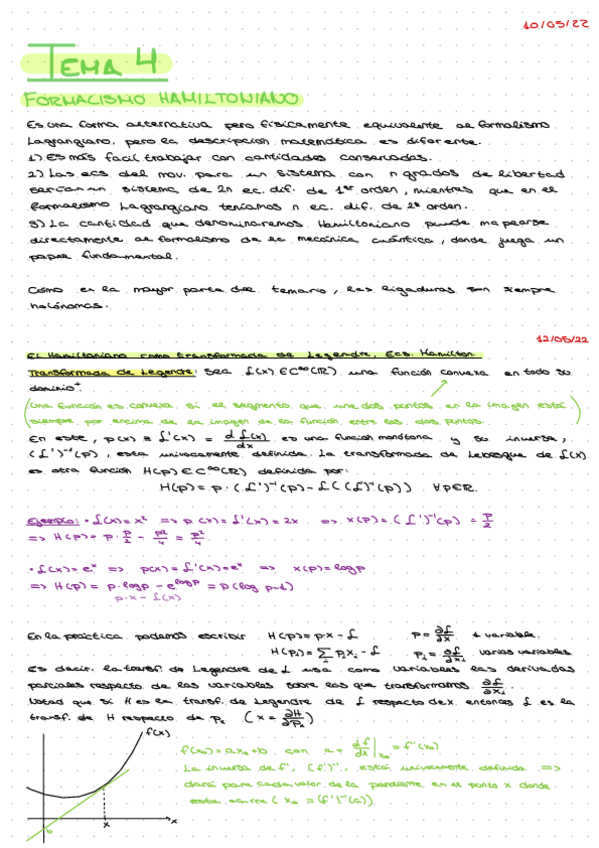 10/05/22
TEMA 4
FORMALISMO HAMILTONIANO
Es una forma alternativa pero físicamente equivalente al formalismo
Lagrangiano, pero la descripción matemática es diferente.
1) Es más fácil trabajar con cantidades conservadas.
2) Las ecs. del mov. para un sistema con n grados de libertad
serían un sistema de 2n ec. dif. de 1er orden, mientras que en el
formalismo Lagrangiano teníamos n ec. dif. de 2º orden.
3) La cantidad que denominaremos Hamiltoniano puede mapearse
directamente al formalismo de la mecánica cuántica, donde juega un
papel fundamental.
Como en la mayor parte del temario, las ligaduras son siempre
holónomas.
12/05/22
El Hamiltoniano como transformada de Legendre, Ecs. Hamilton
Transformada de Legendre: sea f(x) ∈ C^∞(ℝ) una función convexa en todo su
dominio⁺.
(Una función es convexa si el segmento que une dos puntos en la imagen está
siempre por encima de la imagen de la función entre los dos puntos.)
En este, p(x) ≡ f'(x) = df(x)/dx es una función monótona y su inversa,
(f')⁻¹(p), está unívocamente definida. La transformada de Lebesgue de f(x)
es otra función H(p) ∈ C^∞(ℝ) definida por:
H(p) = p · (f')⁻¹(p) - f((f')⁻¹(p)) ∀p∈ℝ.
Ejemplo: • f(x) = x² => p(x) = f'(x) = 2x => x(p) = (f')⁻¹(p) = p/2
=> H(p) = p · p/2 - p²/4 = p²/4
• f(x) = eˣ => p(x) = f'(x) = eˣ => x(p) = log p
=> H(p) = p·log p - e^{log p} = p(log p - 1)
p·x - f(x)
En la práctica podemos escribir H(p) = p·x - f p = ∂f/∂x 1 variable.
H(pᵢ) = Σᵢ pᵢxᵢ - f pᵢ = ∂f/∂xᵢ varias variables
Es decir, la transf. de Legendre de f usa como variables las derivadas
parciales respecto de las variables sobre las que transformamos ∂f/∂xᵢ.
Notad que si H es la transf. de Legendre de f respecto de x, entonces f es la
transf. de H respecto de pₓ (x = ∂H/∂pₓ)
f(x)
x
x
b
f(x₀) = ax₀ + b con a = df/dx|ₓ₀ = f'(x₀)
La inversa de f', (f')⁻¹, está unívocamente definida =>
dará para cada valor de la pendiente en el punto x donde
esta ocurre (x₀ = (f')⁻¹(a)).